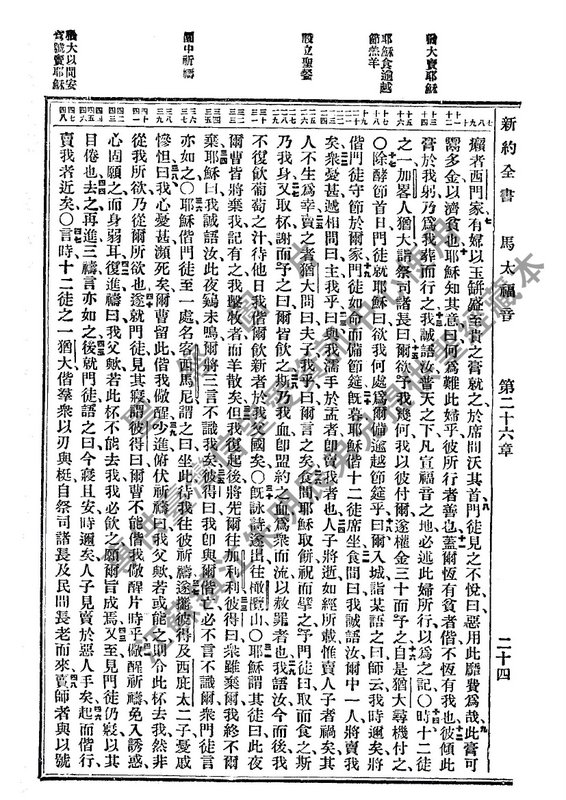 新約全書　馬太福音　第二十六章　二十四
猶大賣耶穌
耶穌食逾越
節羔羊
設立聖餐
園中祈禱
猶大以問安
爲號賣耶穌
癩者西門家有婦以玉缾盛至貴之膏就之於席間沃其首門徒見之不悅曰惡用此靡費爲哉此膏可
鬻多金以濟貧也耶穌知其意曰何爲難此婦乎彼所行者善也蓋爾恆有貧者偕不恆有我也彼傾此
膏於我躬乃爲我葬而行之我誠語汝普天之下凡宣福音之地必述此婦所行以爲之記○時十二徒
之一加畧人猶大語祭司諸長曰爾欲予我幾何我以彼付爾遂權金三十而予之自是猶大尋機付之
○除酵節首日門徒就耶穌曰欲我何處爲爾備逾越節筵乎曰爾入城詣某語之曰師云我時邇矣將
偕門徒守節於爾家門徒如命而備節筵旣暮耶穌偕十二徒席坐食間曰我誠語汝爾中一人將賣我
矣衆憂甚遞相問曰主我乎曰與我濡手於盂者卽賣我者也人子將逝如經所載惟賣人子者禍矣其
人不生爲幸賣之者猶大問曰夫子我乎曰爾言之矣○食間耶穌取餅祝而擘之予門徒曰取而食之斯
乃我身又取杯謝而予之曰爾皆飲之斯乃我血卽盟約之血爲衆而流以赦罪者也我語汝今而後我
不復飲葡萄之汁待他日我偕爾飲新者於我父國矣○旣詠詩遂出往橄欖山○耶穌謂其徒曰此夜
爾曹皆將棄我記有之我擊牧者而羊散矣但我復起後將先爾往加利利彼得曰衆雖棄爾我終不爾
棄耶穌曰我誠語汝此夜鷄未鳴爾將三言不識我矣彼得曰我卽與爾偕亡必不言不識爾衆門徒言
亦如之○耶穌偕門徒至一處名客西馬尼謂之曰坐此待我往彼祈禱遂攜彼得及西庇太二子憂戚
慘怛曰我心憂甚瀕死矣爾曹留此偕我儆醒少進俯伏祈禱曰我父歟若或能之則令此杯去我然非
從我所欲乃從爾所欲也遂就門徒見其寢謂彼得曰爾曹不能偕我儆醒片時乎儆醒祈禱免入誘惑
心固願之而身弱耳復進禱曰我父歟若此杯不能去我我必飲之願爾旨成焉又至見門徒仍寢以其
目倦也去之再進三禱言亦如之後就門徒語之曰今寢且安時邇矣人子見賣於惡人手矣起而偕行
賣我者近矣○言時十二徒之一猶大偕羣衆以刃與梃自祭司諸長及民間長老而來賣師者與以號